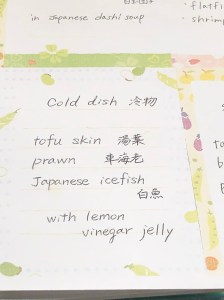 in Japanese dashi soup
· flatfi
· shrimp
Cold dish 冷物
tofu skin 湯葉
prawn 車海老
Japanese icefish
白魚
with lemon
vinegar jelly